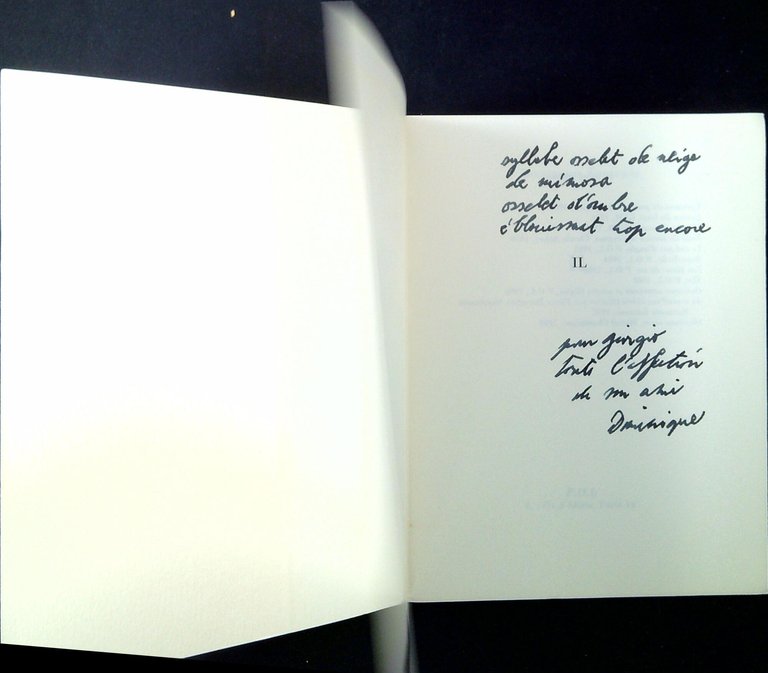 syllabe osselet de neige
de mimosa
osselet d'ombre
éblouissant trop encore
IL
pour giorgio
toute l'affection
de son ami
Dominique